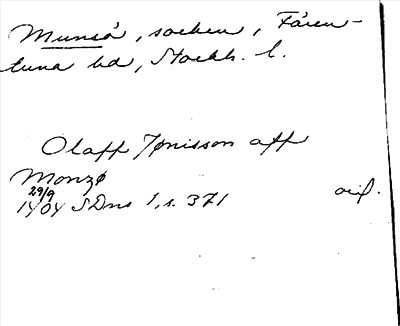 Munsö, socken, Fären-
tuna hd, Stockh. l.
Olaff Jønisson aff
Monzø
29/9
1404 SDns 1, s. 371 oif.